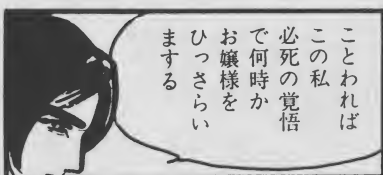 ことわれば
この私
必死の覚悟
で何時か
お嬢様を
ひっさらい
まする